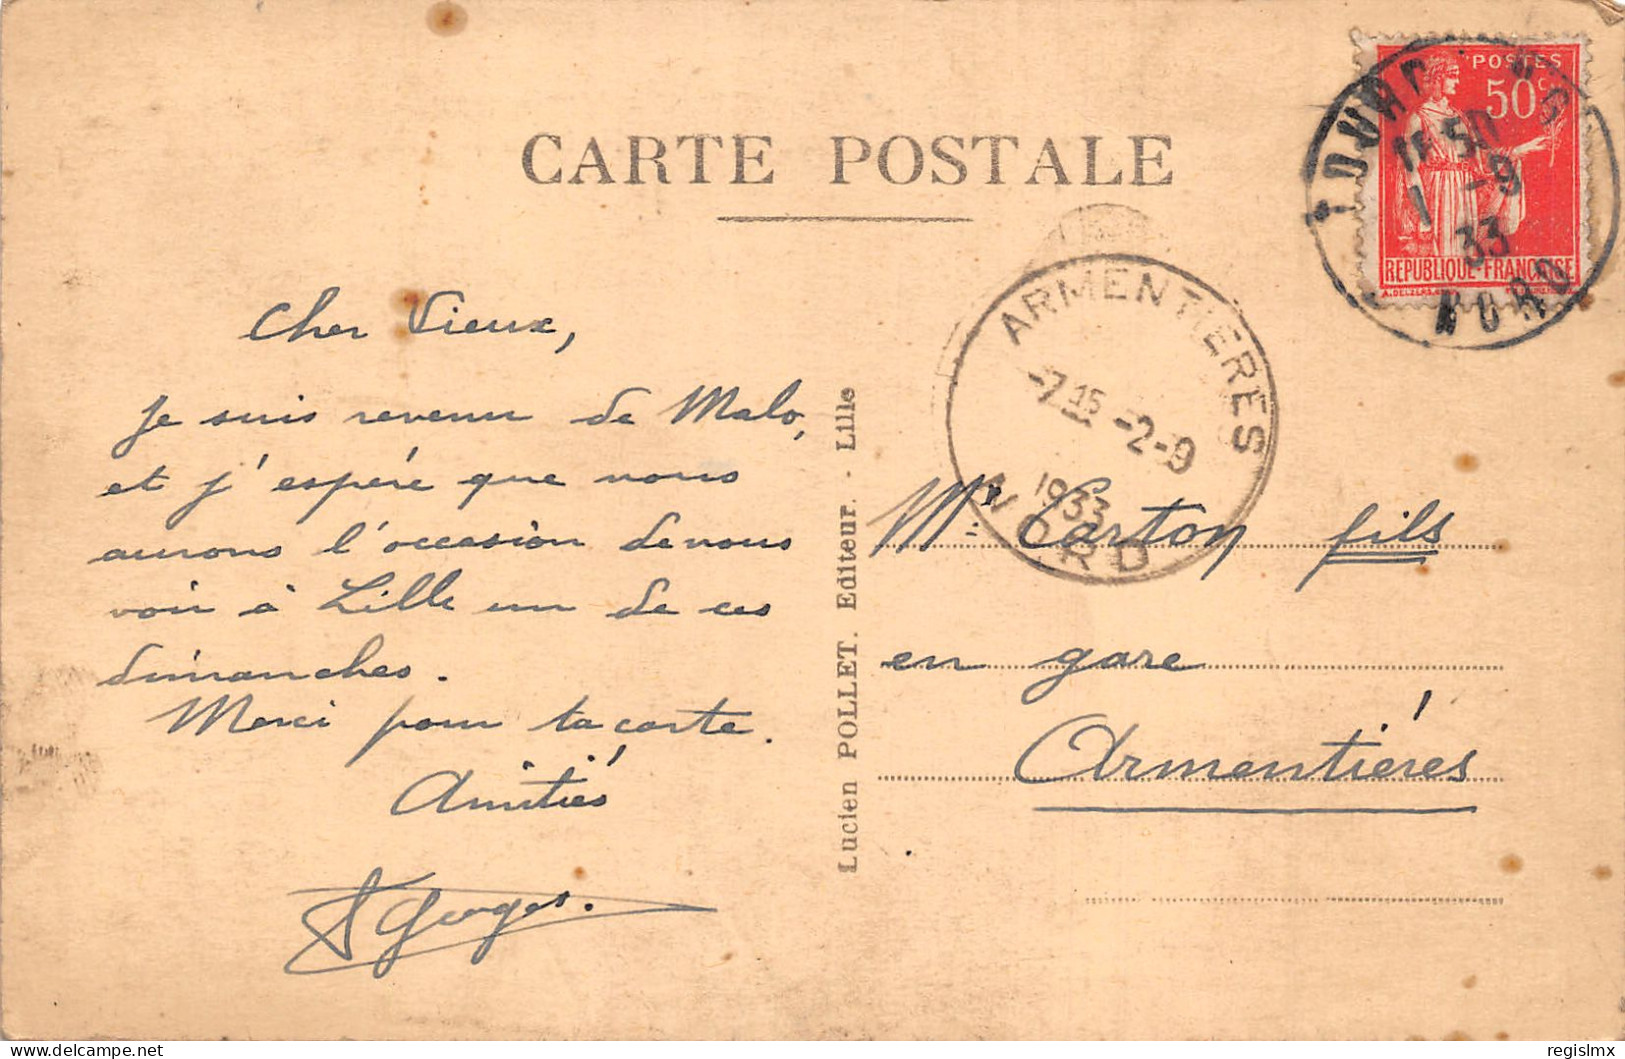 CARTE POSTALE
POSTES
50c
REPUBLIQUE-FRANÇAISE
50
1 -9
33
NORD
ARMENTIERES
-7 15 -2-9
1933
NORD
Cher Vieux,
Je suis revenu de Malo,
et j'espére que nous
aurons l'occasion de vous
voir à Lille un de ces
dimanches.
Merci pour ta carte.
Amitiés
Georges.
Lucien POLLET. Editeur. - Lille
Mr. Carton fils
en gare
Armentiéres
regislmx